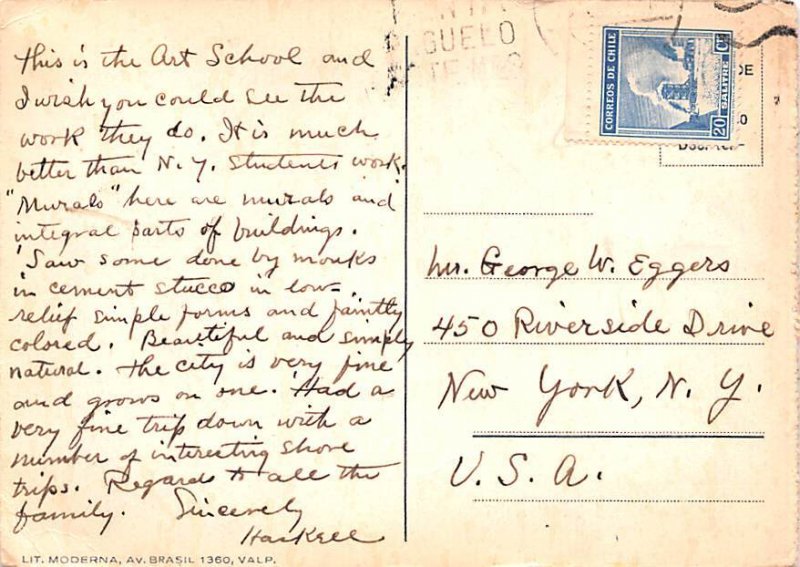 This is the Art School and
I wish you could see the
work they do. It is much
better than N.Y. Students work.
"Murals" here are murals and
integral parts of buildings.
Saw some done by monks
in cement stucco in low-
relief simple forms and faintly
colored. Beautiful and simply
natural. The city is very fine
and grows on one. Had a
very fine trip down with a
number of interesting shore
trips. Regards to all the
family. Sincerely
Haskell
LIT. MODERNA, AV. BRASIL 1360, VALP.
GUELO
CORREOS DE CHILE
SALITRE
20 Cs
DE
Mr. George W. Eggers
450 Riverside Drive
New York, N.Y.
U.S.A.